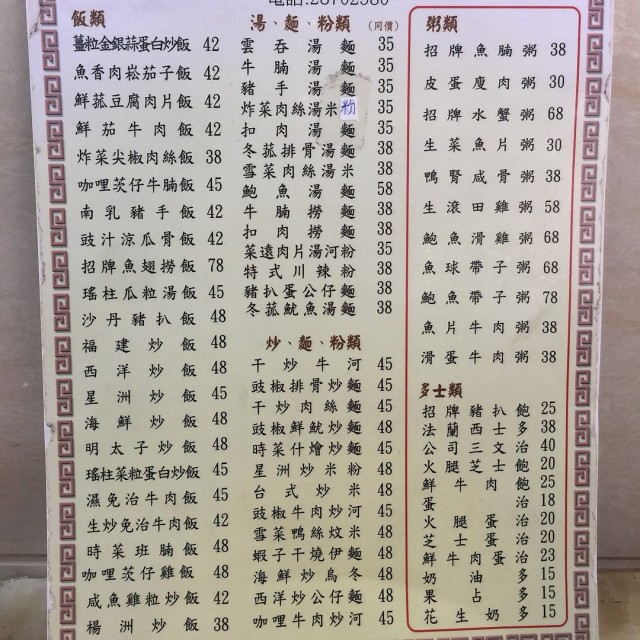 電話:28702580
飯類
薑粒金銀蒜蛋白炒飯 42
魚香肉崧茄子飯 42
鮮菰豆腐肉片飯 42
鮮茄牛肉飯 42
炸菜尖椒肉絲飯 38
咖哩茨仔牛腩飯 45
南乳豬手飯 42
豉汁涼瓜骨飯 42
招牌魚翅撈飯 78
瑤柱瓜粒湯飯 45
沙丹豬扒飯 48
福建炒飯 48
西洋炒飯 48
星洲炒飯 45
海鮮炒飯 48
明太子炒飯 48
瑤柱菜粒蛋白炒飯 45
濕免治牛肉飯 45
生炒免治牛肉飯 42
時菜班腩飯 48
咖哩茨仔雞飯 48
咸魚雞粒炒飯 42
楊洲炒飯 38
湯、麵、粉類 (同價)
雲吞湯麵 35
牛腩湯麵 35
豬手湯麵 35
炸菜肉絲湯米粉 35
扣肉湯麵 35
冬菰排骨湯麵 38
雪菜肉絲湯米 38
鮑魚湯麵 58
牛腩撈麵 38
扣肉撈麵 38
菜遠肉片湯河粉 35
特式川辣粉 38
豬扒蛋公仔麵 38
冬菰魷魚湯麵 38
炒、麵、粉類
干炒牛河 45
豉椒排骨炒麵 45
干炒肉絲麵 45
豉椒鮮魷炒麵 48
時菜什燴炒麵 45
星洲炒米粉 48
台式炒米 48
豉椒牛肉炒河 45
雪菜鴨絲炆米 48
蝦子干燒伊麵 48
海鮮炒烏冬 48
西洋炒公仔麵 48
咖哩牛肉炒河 45
粥類
招牌魚腩粥 38
皮蛋廋肉粥 30
招牌水蟹粥 68
生菜魚片粥 30
鴨腎咸骨粥 38
生滾田雞粥 58
鮑魚滑雞粥 68
魚球帶子粥 68
鮑魚帶子粥 78
魚片牛肉粥 38
滑蛋牛肉粥 38
多士類
招牌豬扒飽 25
法蘭西士多 38
公司三文治 40
火腿芝士飽 20
鮮牛肉飽 25
蛋治 18
火腿蛋治 20
芝士蛋治 20
鮮牛肉蛋治 23
奶油多 15
果占多 15
花生奶多 15